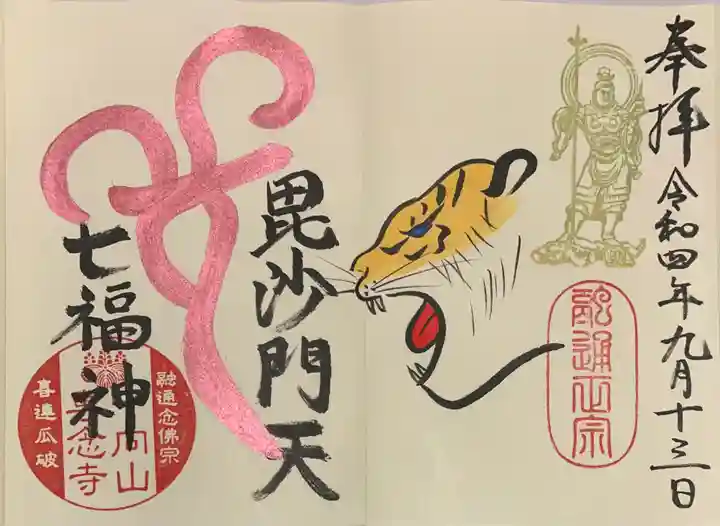 奉拝
令和四年九月十三日
融通正宗
毘沙門天
七福神
融通念佛宗
向山
念寺
喜連瓜破